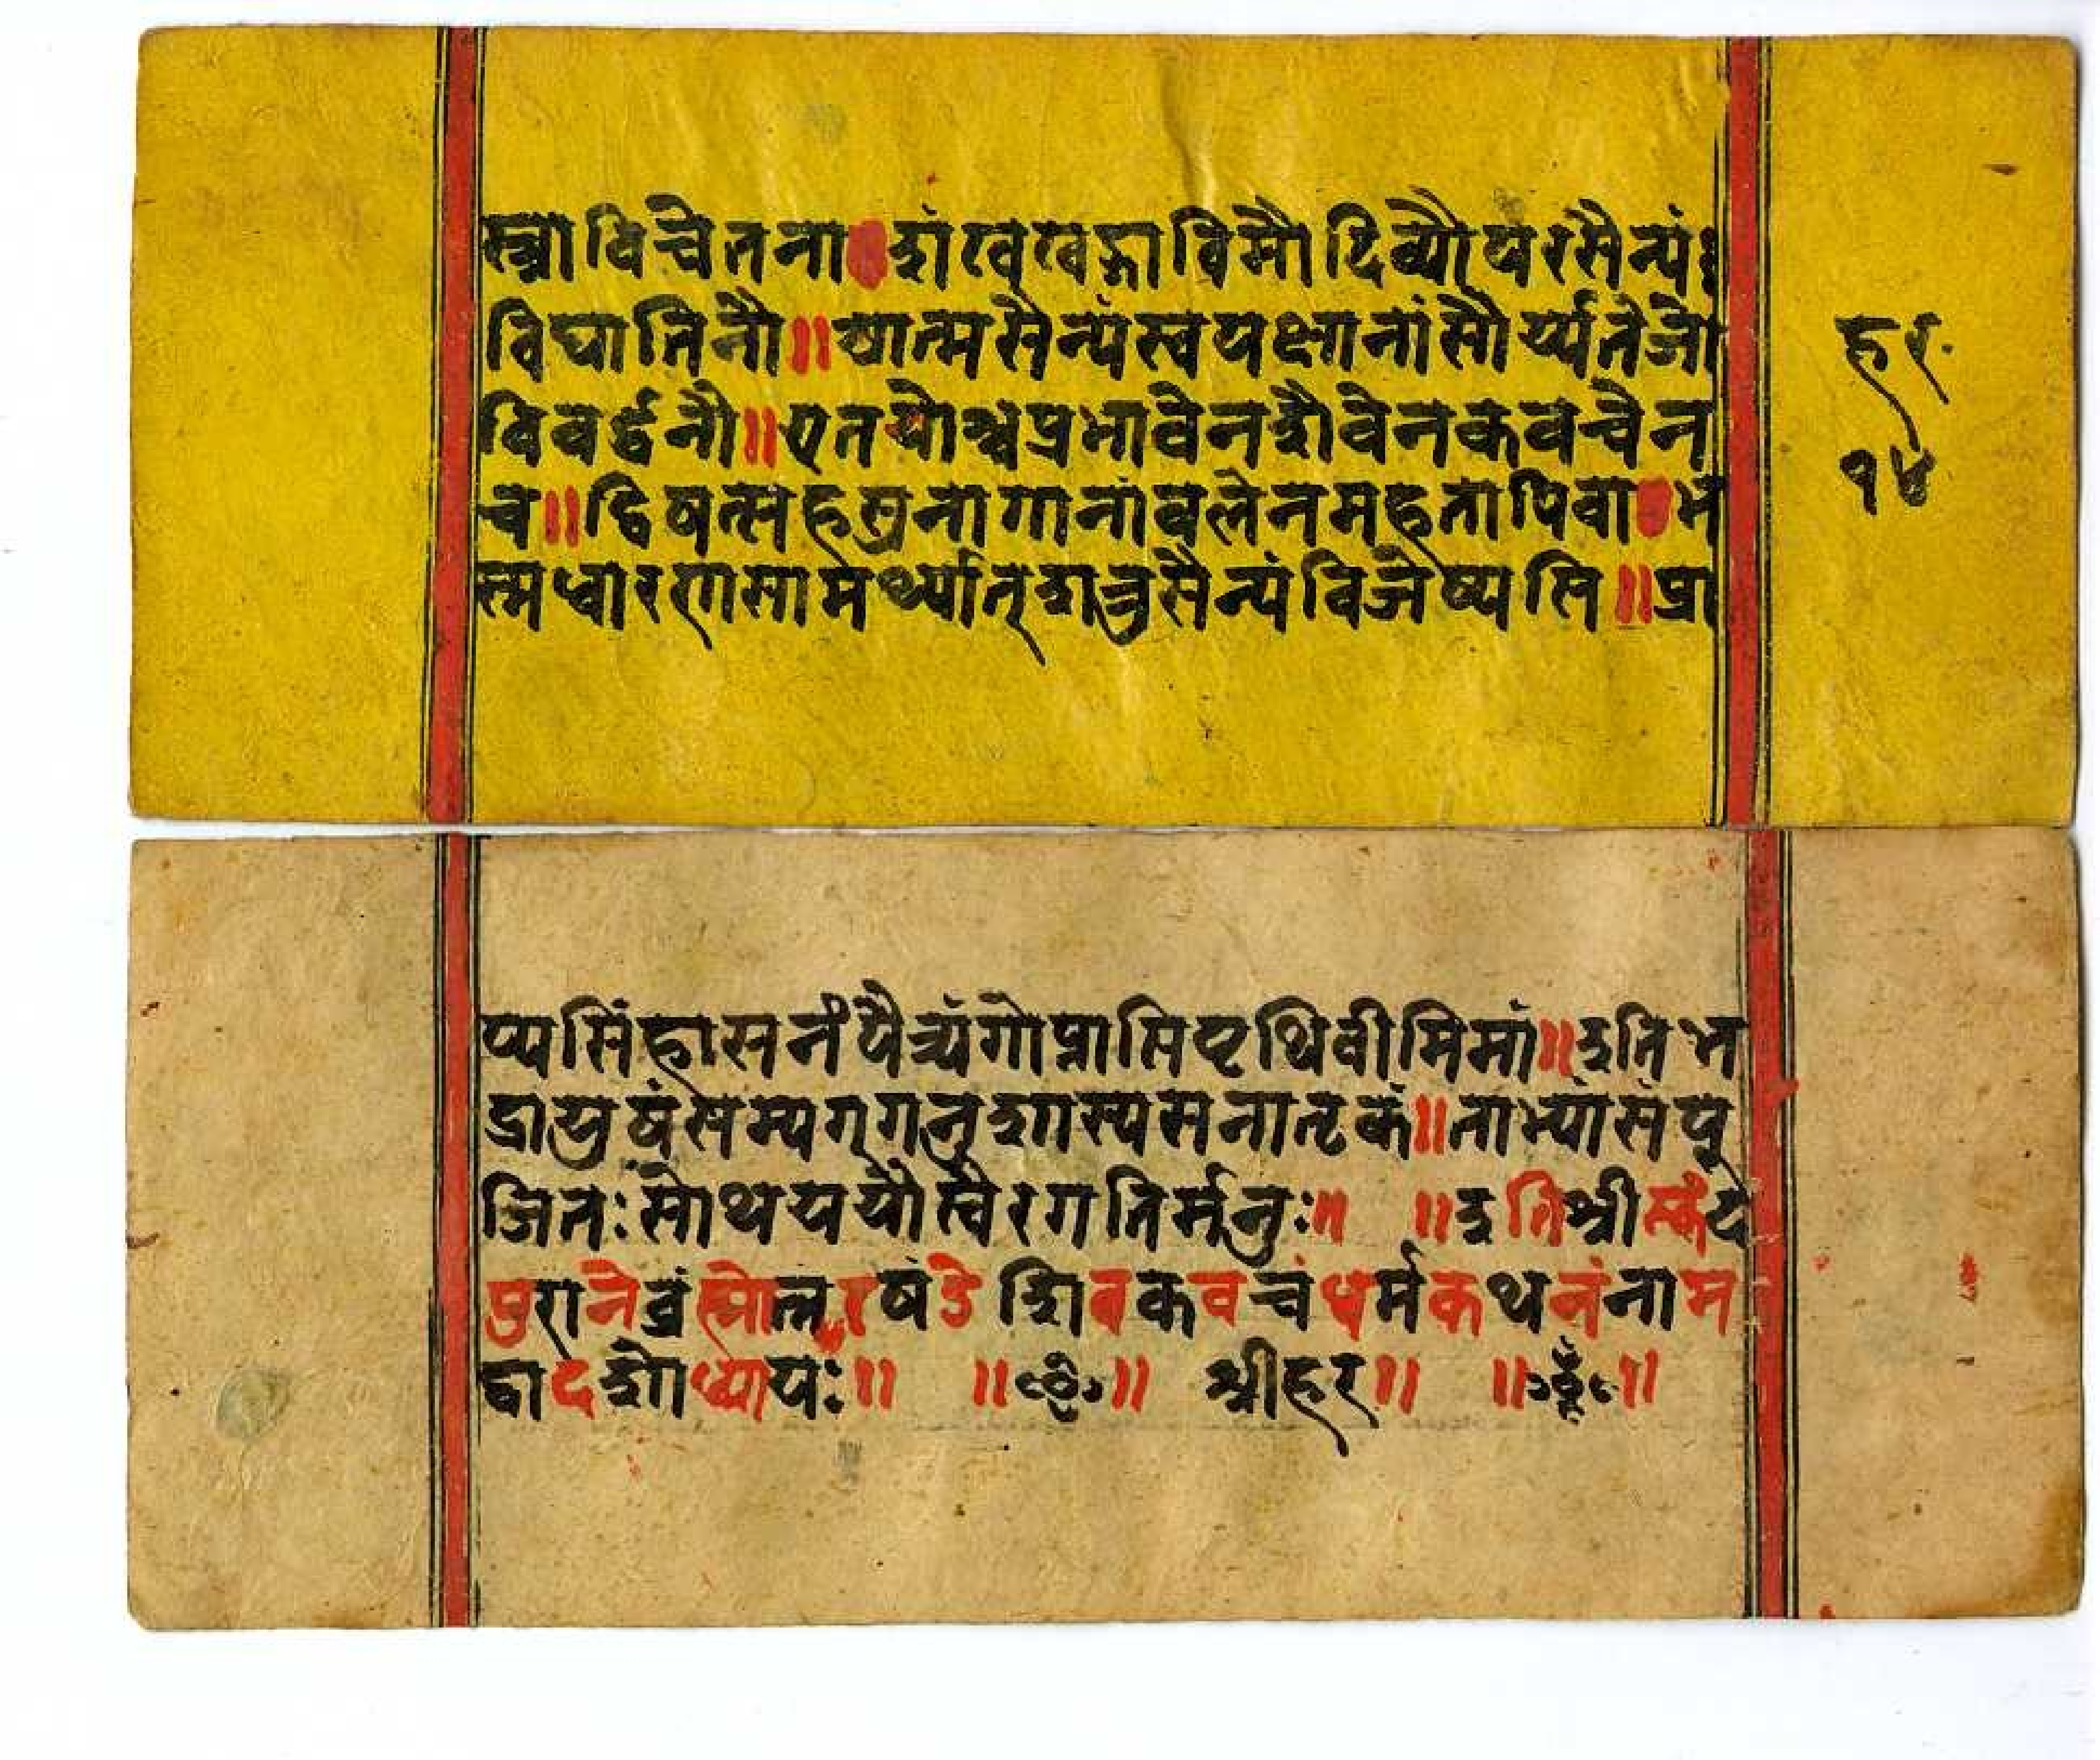 स्त्रा विचेतना दांखखेङ्गाविमौ दिव्यौ परसैन्यं
विघातिनौ॥ आत्मसैन्यंस्वपक्षानांसौर्य्यतेजो
विवर्द्धनौ॥ एतयोश्चप्रभावेनशैवेनकवचेन
च॥ द्विषत्सहस्रनागानांवलेनमहतापिवा भ
स्मधारणसामर्थ्यात्शत्रुसैन्यंविजेष्यसि॥ प्रा
हर
१४
प्यसिंहासनंपैत्र्यंगोप्तासिपृथिवीमिमां॥ इतिभ
द्रायुषंसम्यग्गनुशास्यसमातृकं॥ ताभ्यांसंपू
जितःसोथययौस्वैरगतिर्मुनुः॥ ॥ इतिश्रीस्कंद
पुरानेव्रंह्मोत्तरषंडे शिवकवचंधर्मकथनंनाम
द्वादशोध्यायः॥ ॥ ॥ श्रीहर॥ ॥ ॥